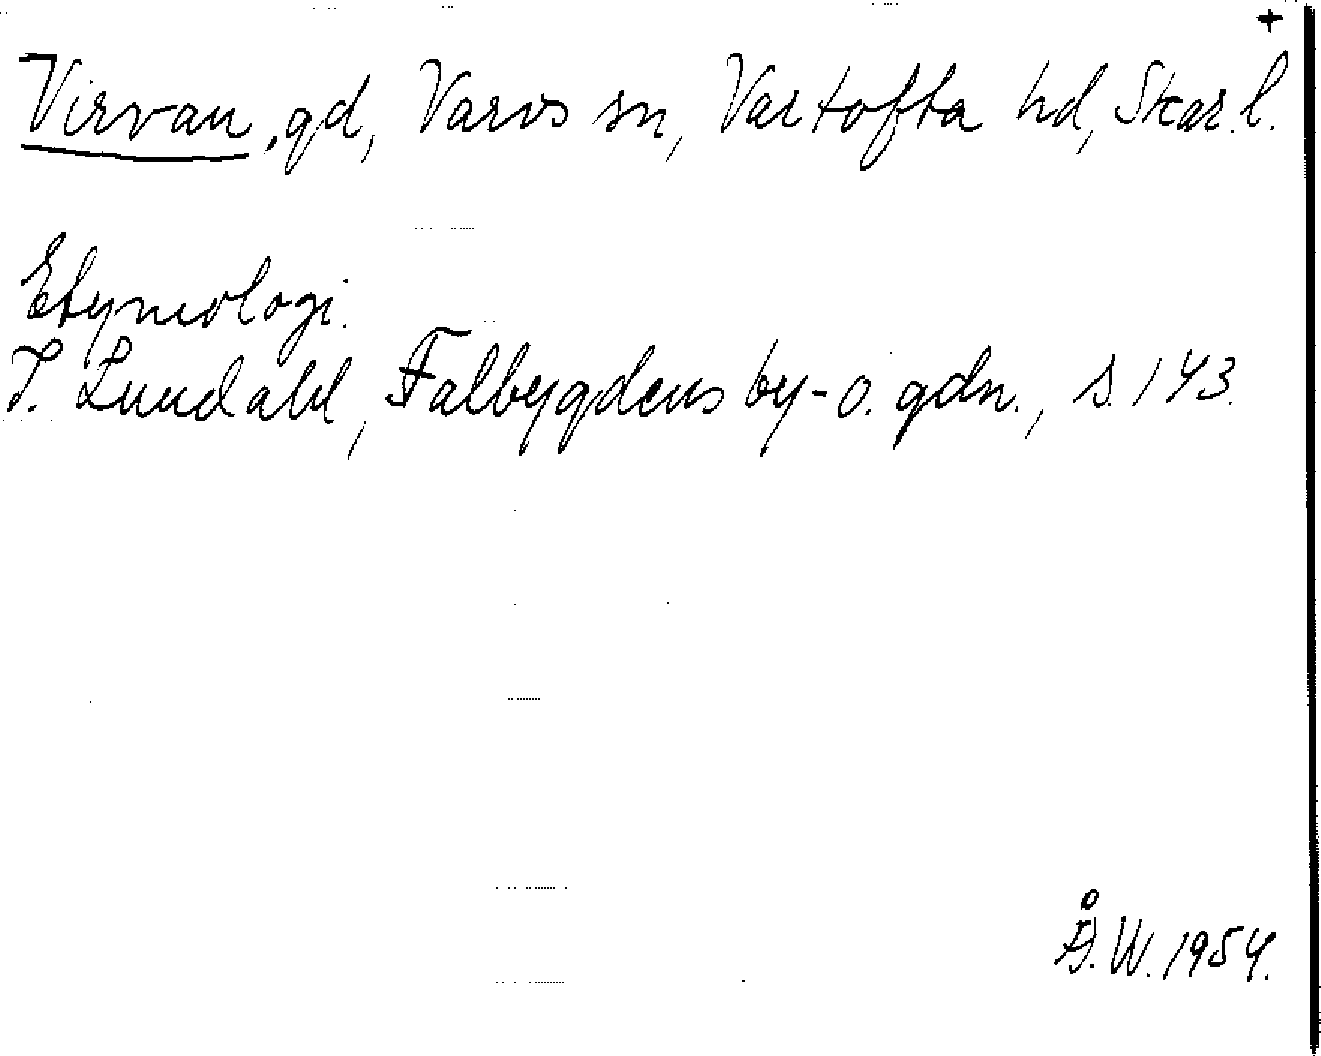 +
Virvan, gd, Varvs sn, Vartofta hd, Skar. l.
Etymologi.
I. Lundahl, Falbygdens by- o. gdn., s. 143.
Å. W. 1954.